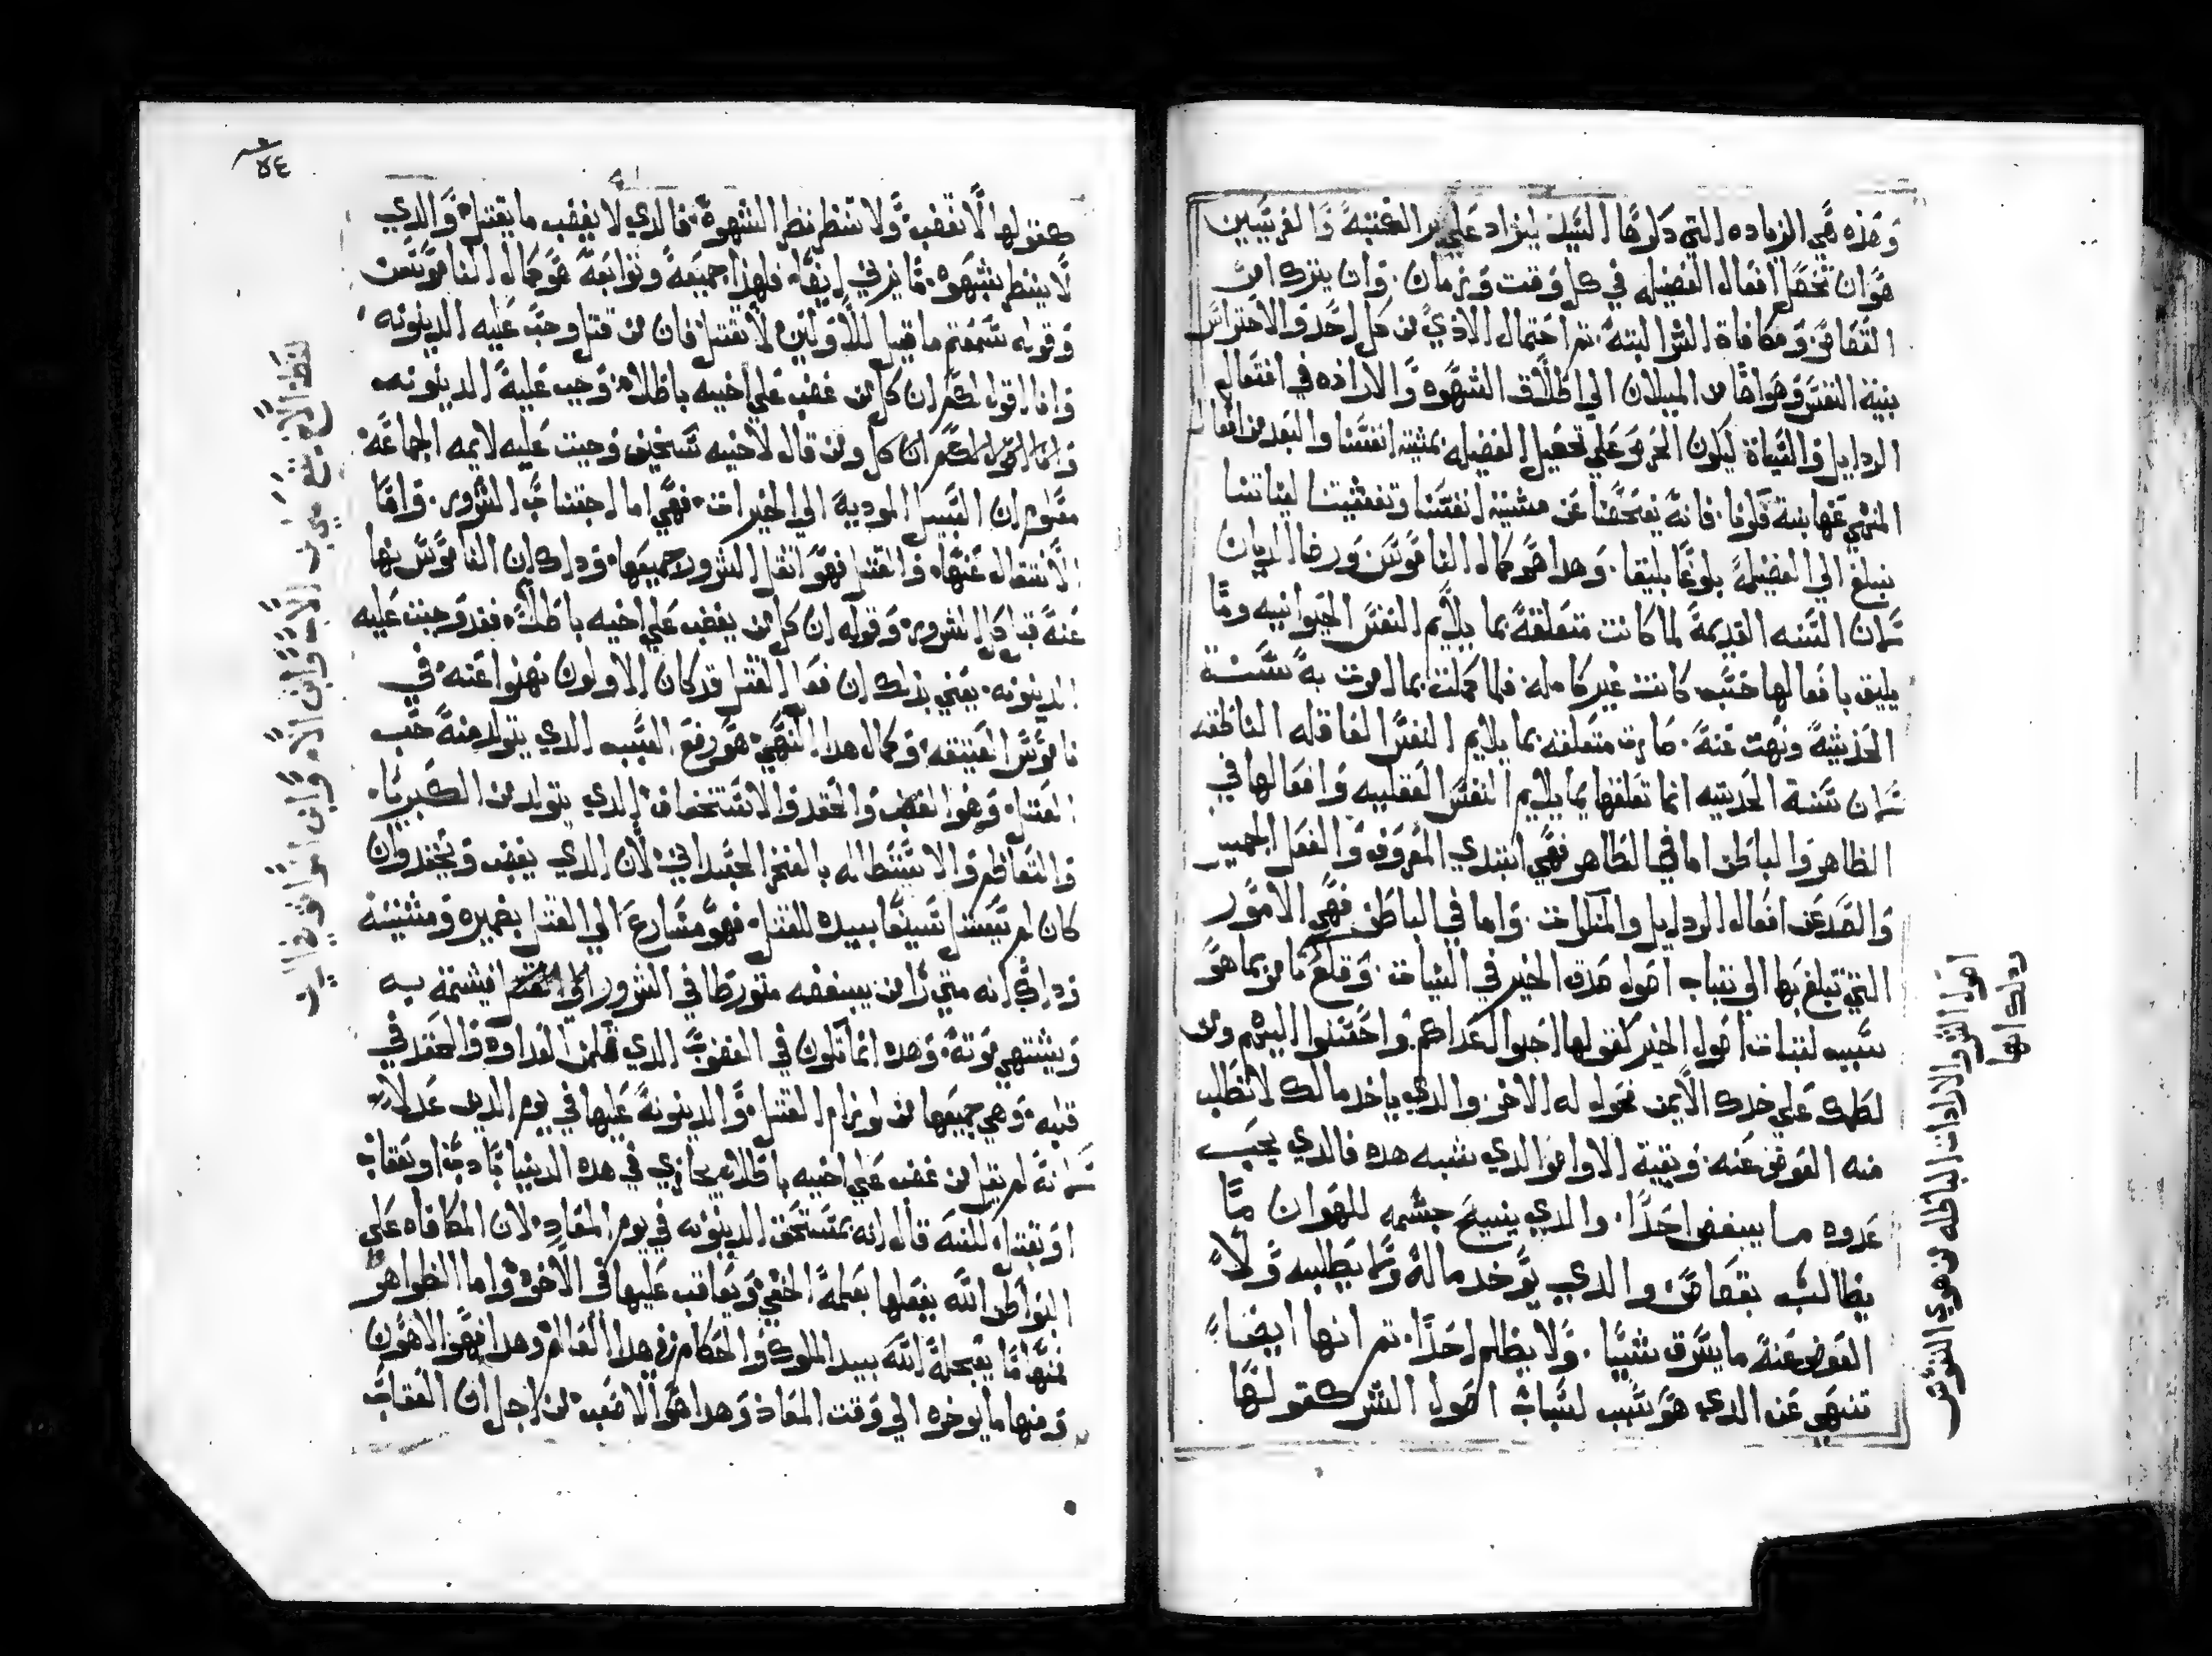 وهذه هي الزياده التي ذكرها السيد ليزاد علي بر الكتبه والفريسيين
هو ان تحصل افعال الفضيله في كل وقت وزمان. وان يترك امر
القصاص ومكافاة الشر البته. تم احتمال الادي من كل احد والاحتراس
بنية النفس وهواها من الميلان الي اطلاق الشهوه والاراده في افتعال
الردايل والسياة ليكون الحرص علي تحصيل الفضيله بمشية انفسنا والبعد من افعال
المنهي عنها بنية قلوبنا. فانه يفحصنا عن مشية انفسنا وتفتيشنا لنياتنا
نبلغ الي الفضيلة بلوغا بليغا. وهدا هو كمال الناموس ورضا الديان
ان السنه القديمة لما كانت متعلقة بما يلايم النفس الحيوانيه وما
يليق بافعالها حسب كانت غير كامله. فلما كملت بما امرت به السنة
الحديثة ونهت عنه. صارت متعلقه بما يلايم النفس العاقله الناطقه
ان سنة الحديثه انما تعلقها بما يلايم النفس العقليه وافعالها في
الظاهر والباطن اما في الظاهر فهي تبتدي المعروف والفعل الجميل
والصد عن افعال الردايل والمنكرات. واما في الباطن فهي الامور
التي تبلغ بها الي تبات اصول هده الخير في النيات. وقلع تامر بما هو
سبب لتبات اصول الخير كقولها احبوا اعداكم. واحسنوا اليهم ومن
لطمك علي خدك الايمن فحول له الاخر. والدي ياخد مالك لا تطلب
منه العوض عنه. وبقية الاوامر الدي تشبه هده فالدي يحب
عدوه ما يبغض احدا. والدي يبيح جسمه للهوان ما
يطالب بقصاص والدي يوخد ماله وما يطلبه ولا
العوض عنه ما يسرق شيا. ولا يظلم احدا. تم انها ايضا
تنهي عن الدي هو سبب لتبات اصول الشر كقولها
اصول الشر والارادات الباطله من هوي النفس
ودلك انها
٥٤
كقولها لا تغضب ولا تنظر نظر الشهوة. فالدي لا يغضب ما يقتل. والدي
لا ينظر بشهوه. ما يزني ايضا. فلهذا جميعه وتوابعه هو كمال الناموس
وقوله سمعتم ما قيل للاولين لا تقتل فان من قتل وجب عليه الدينونه
وانا اقول لكم ان كل من غضب علي اخيه باطلا. وجب عليه الدينونه
وانا اقول لكم ان كل ومن قال لاخيه سخيف وجبت عليه لايمه الجماعه
معلوم ان السبل الموديه الي الخيرات. فهي اما اجتناب الشرور. واما
الانتقال عنها. والقتل فهو اتقل الشرور جميعها. ودلك ان الناموس نها
عنه قبل كل الشرور. وقوله ان كل من يغضب علي اخيه باطلا. فقد وجبت عليه
الدينونه. يعني بدلك ان فعل القتل قد كان الاولون نهيوا عنه في
ناموس العتيقه. وكمال هدا النهي هو رفع السبب الدي يتولد منه حب
القتل. وهو الغضب والحقد والاستخفاف الدي يتولد من الكبرياء
والتعاظم والاستطاله بالفخر الجسداني. لان الدي يغضب ويحقد وان
كان لم يقتل سيفا بيده للقتل. فهو مسارع الي القتل بضميره ومشيته
ودلك انه متي راي من يبغضه متورطا في الشرور الي القتل فيشمت به
ويشتهي موته. وهده انما تكون في الغضوب الدي تكمن العداوه والحقد في
قلبه. وهي جميعها من لوازم القتل. والدينونة عليها في يوم الدين عدلا
انه لم يقل من غضب علي اخيه باطلا. يجازي في هده الدنيا بادب او بعقاب
او بقتل. لكنه قال انه يستحق الدينونه في يوم المعاد. لان المكافاه علي
البواطن الله يفعلها بعلمه الخفي ويعاقب عليها في الاخرة. واما الظواهر
فمنها ما يعجله الله بيد الملوك والحكام في هدا العالم. وهدا فهو الاهون
ومنها ما يوخره الي وقت المعاد وهدا هو الاصعب. من اجل ان العقاب